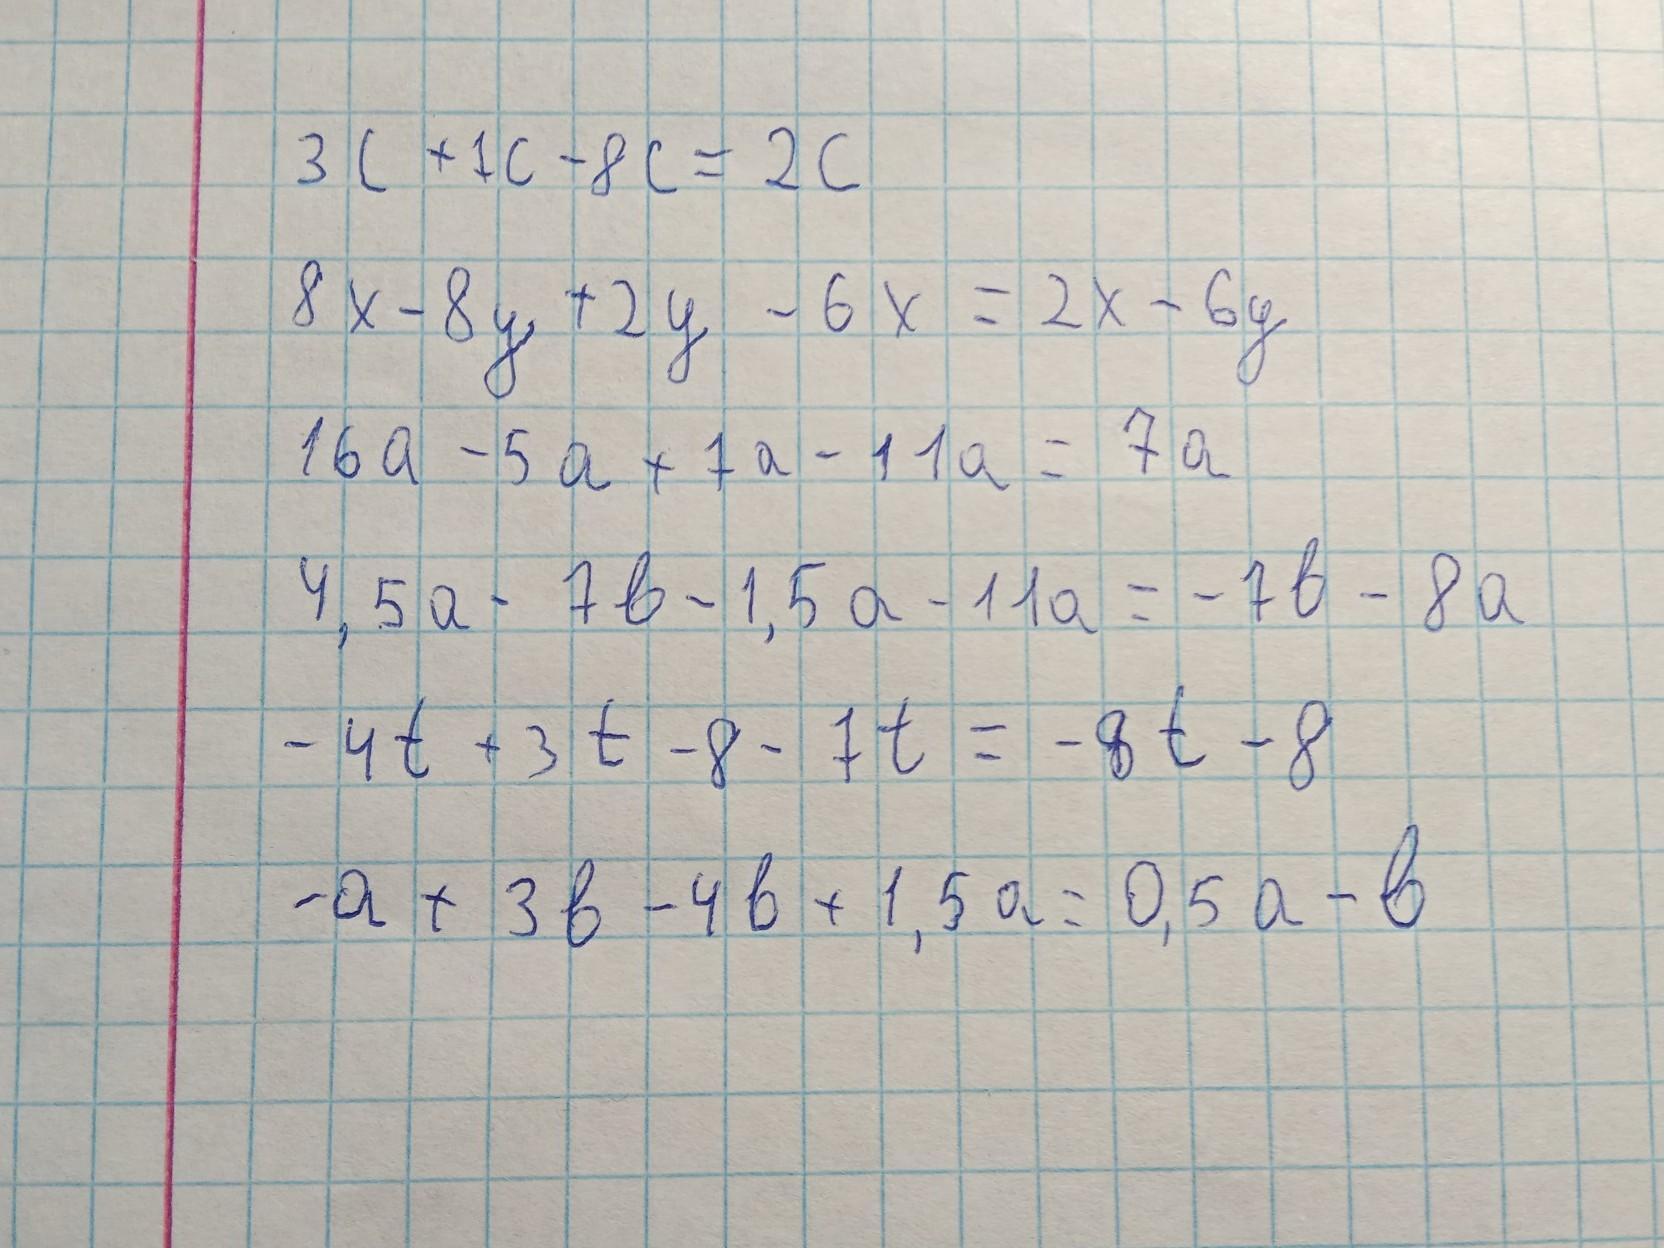 3c + 7c - 8c = 2c
8x - 8y + 2y - 6x = 2x - 6y
16a - 5a + 7a - 11a = 7a
4,5a - 7b - 1,5a - 11a = -7b - 8a
-4t + 3t - 8 - 7t = -8t - 8
-a + 3b - 4b + 1,5a = 0,5a - b